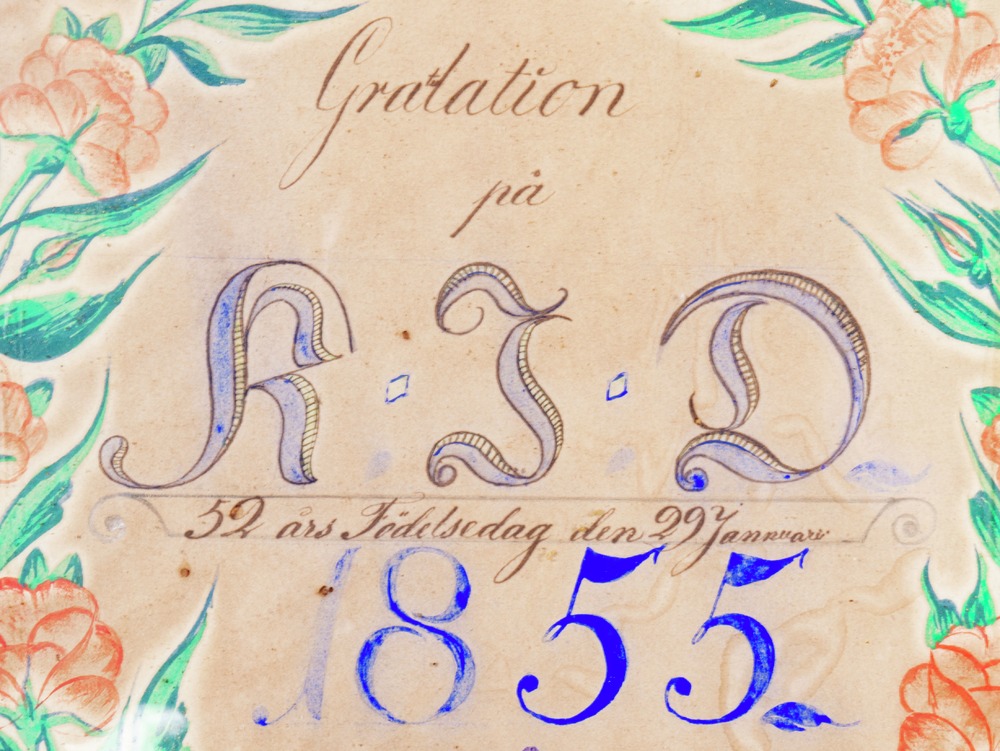 Gratlation
på
K · I · D
52 års Födelsedag den 29 Jannuari
1855